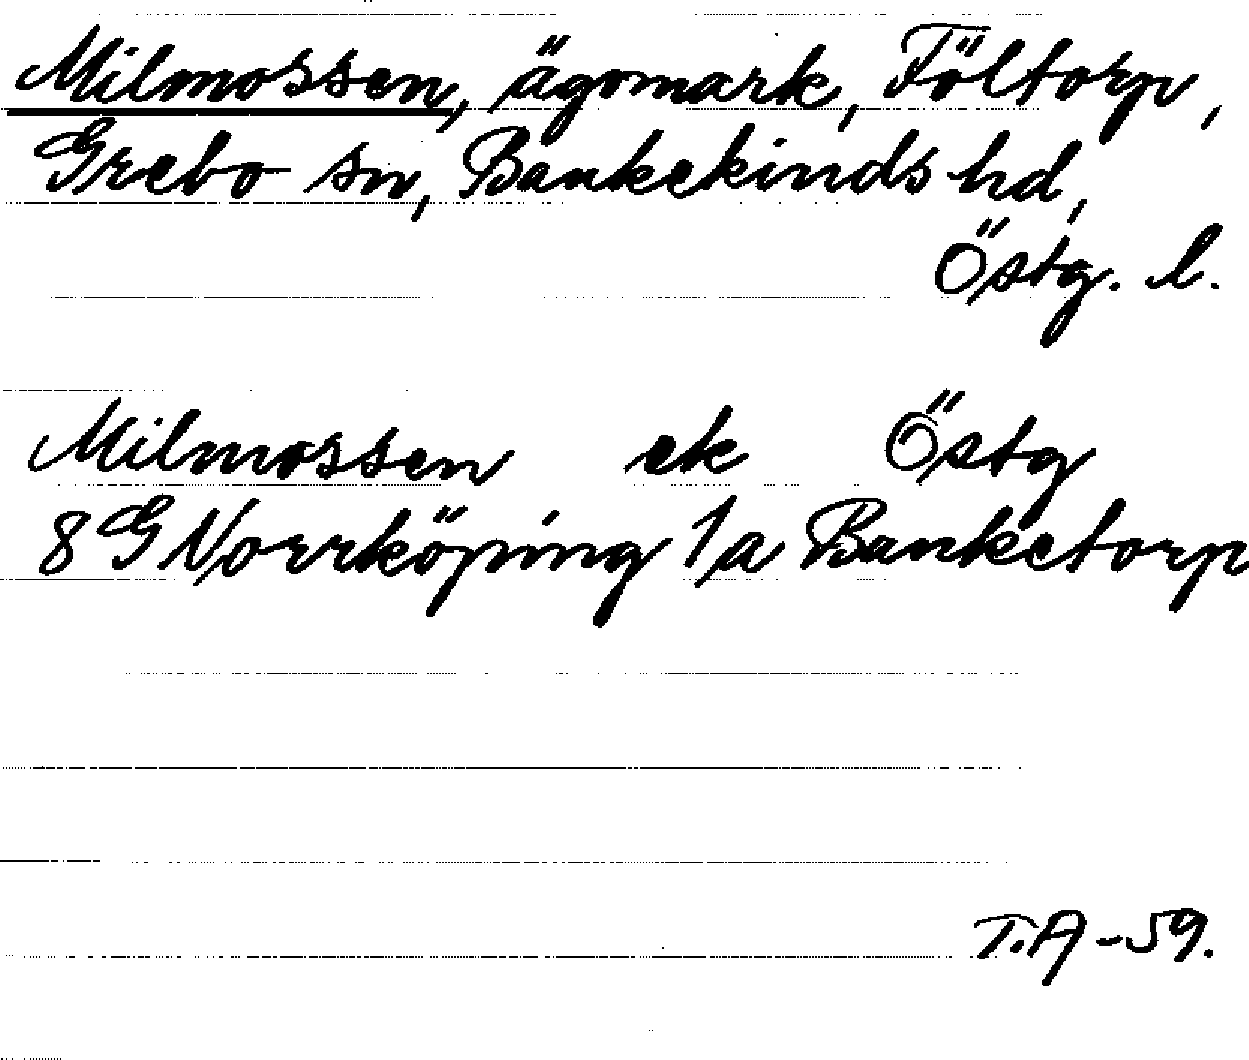 Milmossen, ägomark, Föltorp,
Grebo sn, Bankekinds hd,
Östg. l.
Milmossen ek Östg
8G Norrköping 1a Banketorp
T.A-59.